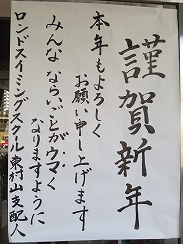 謹賀新年
本年もよろしく
お願い申し上げます
みんなならいごとがウマく
なりますように
ロンドスイミングスクール東村山支配人